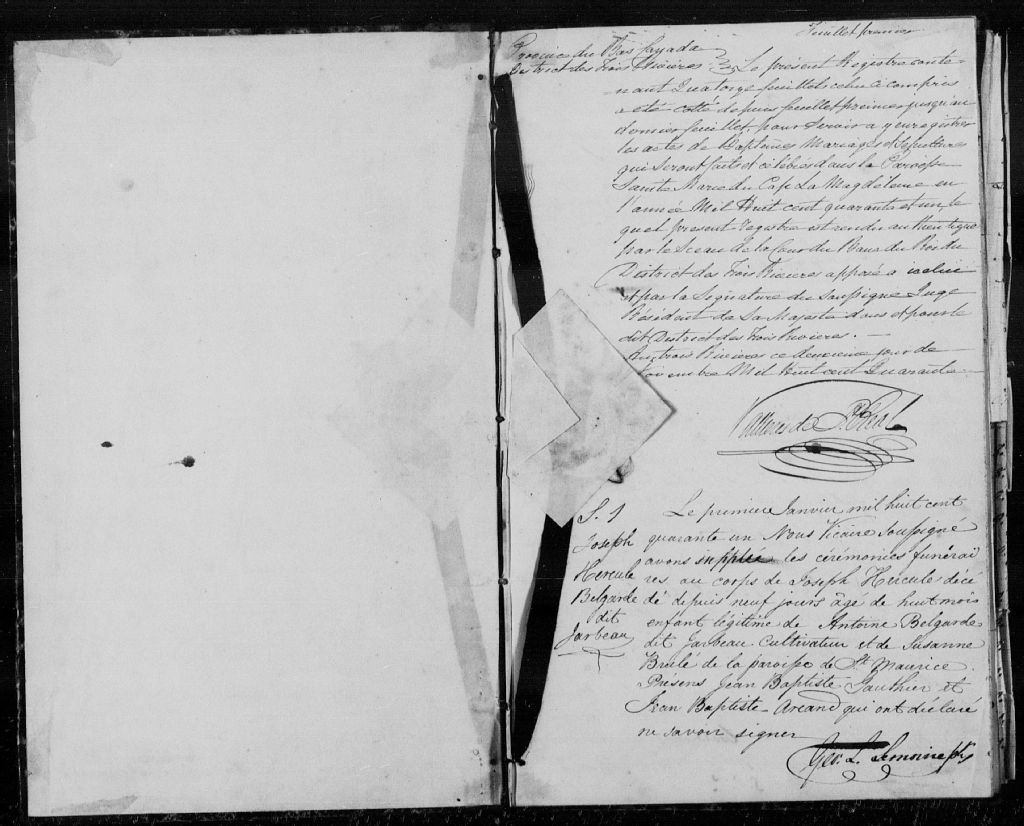 Feuillet premier
Province du Bas Canada
District des Trois Rivieres
Le présent Registre conte
nant Quatorze feuillets celui ci compris
a été cotté depuis feuillet premier jusqu'au
dernier feuillet, pour servir a y enregistrer
les actes de Baptêmes Mariages et Sepultures
qui seront faits et célébrés dans la Paroisse
Sainte Marie du Cap La Magdeleine en
l'année Mil Huit cent quarante et un le
quel present registre est rendu authentique
par le Sceau de la Cour du Banc du Roi du
District des Trois Rivieres apposé a icelui
et par la Signature du Soussigné Juge
Résident de Sa Majesté dans et pour le
dit District des Trois Rivieres.
Aux trois Rivieres ce deuxieme jour de
Novembre Mil Huit cent Quarante
Vallieres de St. Real
S. 1
Joseph
Hercule
Belgarde
dit
Jarbeau
Le premier Janvier mil huit cent
quarante un Nous Vicaire Soussigné
avons suppléé les cérémonies funérai
res au corps de Joseph Hercule décé
dé depuis neuf jours âgé de huit mois
enfant légitime de Antoine Belgarde
dit Jarbeau Cultivateur et de Susanne
Brulé de la paroisse de St. Maurice.
Présens Jean Baptiste Gauthier et
Jean Baptiste Arcand qui ont déclaré
ne savoir signer
Geo. S. Lemoine ptr